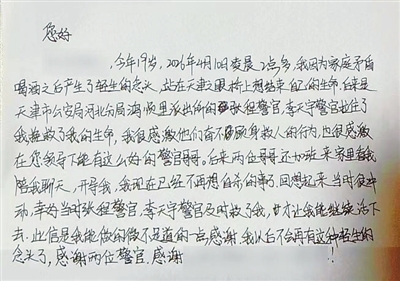 您好
今年19岁，2026年4月10日凌晨2点多，我因为家庭矛盾
喝酒之后产生了轻生的念头，站在天津之眼桥上想结束自己的生命，后来是
天津市公安局河北分局鸿顺里派出所的张程警官，李天宇警官拉住了
我挽救了我的生命，我很感激他们奋不顾身救人的行为，也很感激
在您领导下能有这么好的警官哥哥。后来两位哥哥还加班来家里看我
陪我聊天，开导我，我现在已经不再想自杀的事了。回想起来，当时很冲
动，幸好当时张程警官，李天宇警官及时救了我，才让我能继续活下
去。此信是我能做的微不足道的一点感谢，我以后不会再有这种轻生的
念头了，感谢两位警官，感谢！